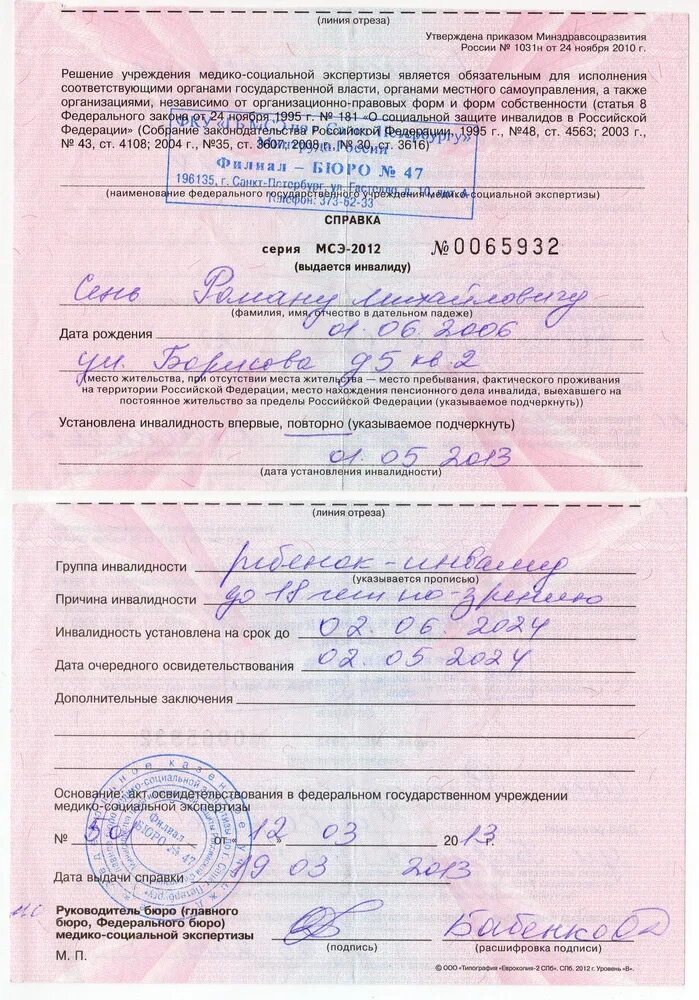 (линия отреза)
Утверждена приказом Минздравсоцразвития
России № 1031н от 24 ноября 2010 г.
Решение учреждения медико-социальной экспертизы является обязательным для исполнения
соответствующими органами государственной власти, органами местного самоуправления, а также
организациями, независимо от организационно-правовых форм и форм собственности (статья 8
Федерального закона от 24 ноября 1995 г. № 181 «О социальной защите инвалидов в Российской
Федерации» (Собрание законодательства Российской Федерации, 1995 г., №48, ст. 4563; 2003 г.,
№ 43, ст. 4108; 2004 г., №35, ст. 3607; 2008 г., № 30, ст. 3616)
Минтруда России
Филиал – БЮРО № 47
196135, г. Санкт-Петербург, ул. Гастелло, д. 10, лит. А
Телефон: 373-62-33
(наименование федерального государственного учреждения медико-социальной экспертизы)
СПРАВКА
серия МСЭ-2012 №0065932
(выдается инвалиду)
Сень Роману Михайловичу
(фамилия, имя, отчество в дательном падеже)
Дата рождения 01.06.2006
ул. Борисова д5 кв.2
(место жительства, при отсутствии места жительства — место пребывания, фактического проживания
на территории Российской Федерации, место нахождения пенсионного дела инвалида, выехавшего на
постоянное жительство за пределы Российской Федерации (указываемое подчеркнуть))
Установлена инвалидность впервые, повторно (указываемое подчеркнуть)
01.05 2013
(дата установления инвалидности)
(линия отреза)
Группа инвалидности ребенок-инвалид
(указывается прописью)
Причина инвалидности до 18 лет по-зрению
Инвалидность установлена на срок до 02.06.2024
Дата очередного освидетельствования 02.05 2024
Дополнительные заключения
Основание: акт освидетельствования в федеральном государственном учреждении
медико-социальной экспертизы
№ 501 от « 12 » 03 2013 г.
Филиал –
БЮРО № 47
Дата выдачи справки 19 03 2013
Руководитель бюро (главного
бюро, Федерального бюро)
медико-социальной экспертизы
Бабенко
(подпись) (расшифровка подписи)
М. П.
© ООО «Типография «Еврокопия-2 СПб». СПб. 2012 г. Уровень «В».